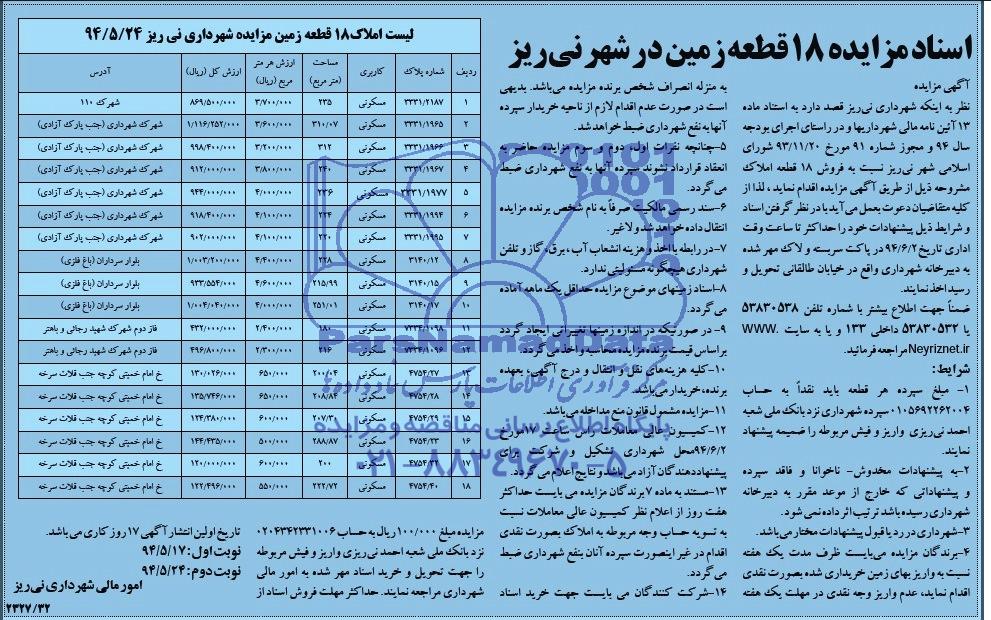 اسناد مزایده ۱۸ قطعه زمین در شهر نی‌ریز
آگهی مزایده
نظر به اینکه شهرداری نی‌ریز قصد دارد به استناد ماده
۱۳ آئین نامه مالی شهرداریها و در راستای اجرای بودجه
سال ۹۴ و مجوز شماره ۹۱ مورخ ۹۳/۱۱/۲۰ شورای
اسلامی شهر نی‌ریز نسبت به فروش ۱۸ قطعه املاک
مشروحه ذیل از طریق آگهی مزایده اقدام نماید، لذا از
کلیه متقاضیان دعوت بعمل می‌آید با در نظر گرفتن اسناد
و شرایط ذیل پیشنهادات خود را حداکثر تا ساعت وقت
اداری تاریخ ۹۴/۶/۲ در پاکت سربسته و لاک مهر شده
به دبیرخانه شهرداری واقع در خیابان طالقانی تحویل و
رسید اخذ نمایند.
ضمناً جهت اطلاع بیشتر با شماره تلفن ۵۳۸۳۰۵۳۸
یا ۵۳۸۳۰۵۳۲ داخلی ۱۳۳ و یا به سایت WWW.
Neyriznet.ir مراجعه فرمائید.
شرایط:
۱- مبلغ سپرده هر قطعه باید نقداً به حساب
۰۱۰۵۶۹۲۲۶۲۰۰۴ سپرده شهرداری نزد بانک ملی شعبه
احمد نی‌ریزی واریز و فیش مربوطه را ضمیمه پیشنهاد
نمایند.
۲-به پیشنهادات مخدوش- ناخوانا و فاقد سپرده
و پیشنهاداتی که خارج از موعد مقرر به دبیرخانه
شهرداری رسیده باشد ترتیب اثر داده نمی شود.
۳-شهرداری در رد یا قبول پیشنهادات مختار می‌باشد.
۴-برندگان مزایده می‌بایست ظرف مدت یک هفته
نسبت به واریز بهای زمین خریداری شده بصورت نقدی
اقدام نماید، عدم واریز وجه نقدی در مهلت یک هفته
به منزله انصراف شخص برنده مزایده می‌باشد. بدیهی
است در صورت عدم اقدام لازم از ناحیه خریدار سپرده
آنها به نفع شهرداری ضبط خواهد شد.
۵-چنانچه نفرات اول، دوم و سوم مزایده حاضر به
انعقاد قرارداد نشوند سپرده آنها به نفع شهرداری ضبط
می‌گردد.
۶-سند رسمی مالکیت صرفاً به نام شخص برنده مزایده
انتقال داده خواهد شد و لاغیر.
۷-در رابطه با اخذ و هزینه انشعاب آب، برق، گاز و تلفن
شهرداری هیچگونه مسئولیتی ندارد.
۸-اسناد زمینهای موضوع مزایده حداقل یک ماهه آماده
می‌گردد.
۹- در صورتیکه در اندازه زمینها تغییراتی ایجاد گردد
براساس قیمت برنده مزایده محاسبه و اخذ می‌گردد.
۱۰-کلیه هزینه‌های نقل و انتقال و درج آگهی، بعهده
برنده، خریدار می‌باشد.
۱۱-مزایده مشمول قانون منع مداخله می‌باشد.
۱۲-کمیسیون عالی معاملات راس ساعت ۱۷ مورخ
۹۴/۶/۲ محل شهرداری تشکیل و شرکت برای
پیشنهاد دهندگان آزاد می‌باشد و نتایج اعلام می‌گردد.
۱۳-مستند به ماده ۷ برندگان مزایده می بایست حداکثر
هفت روز از اعلام نظر کمیسیون عالی معاملات نسبت
به تسویه حساب وجه مربوطه به املاک بصورت نقدی
اقدام در غیر اینصورت سپرده آنان بنفع شهرداری ضبط
می‌گردد.
۱۴-شرکت کنندگان می بایست جهت خرید اسناد
لیست املاک ۱۸ قطعه زمین مزایده شهرداری نی ریز ۹۴/۵/۲۴
ردیف شماره پلاک کاربری مساحت (متر مربع) ارزش هر متر مربع (ریال) ارزش کل (ریال) آدرس
۱ ۳۳۳۱/۲۱۸۷ مسکونی ۲۳۵ ۳/۷۰۰/۰۰۰ ۸۶۹/۵۰۰/۰۰۰ شهرک ۱۱۰
۲ ۳۳۳۱/۱۹۶۵ مسکونی ۳۱۰/۰۷ ۳/۶۰۰/۰۰۰ ۱/۱۱۶/۲۵۲/۰۰۰ شهرک شهرداری (جنب پارک آزادی)
۳ ۳۳۳۱/۱۹۶۶ مسکونی ۳۱۲ ۳/۲۰۰/۰۰۰ ۹۹۸/۴۰۰/۰۰۰ شهرک شهرداری (جنب پارک آزادی)
۴ ۳۳۳۱/۱۹۶۷ مسکونی ۲۴۰ ۳/۸۰۰/۰۰۰ ۹۱۲/۰۰۰/۰۰۰ شهرک شهرداری (جنب پارک آزادی)
۵ ۳۳۳۱/۱۹۷۷ مسکونی ۲۳۶ ۴/۰۰۰/۰۰۰ ۹۴۴/۰۰۰/۰۰۰ شهرک شهرداری (جنب پارک آزادی)
۶ ۳۳۳۱/۱۹۹۴ مسکونی ۲۲۴ ۴/۱۰۰/۰۰۰ ۹۱۸/۴۰۰/۰۰۰ شهرک شهرداری (جنب پارک آزادی)
۷ ۳۳۳۱/۱۹۹۵ مسکونی ۲۲۰ ۴/۱۰۰/۰۰۰ ۹۰۲/۰۰۰/۰۰۰ شهرک شهرداری (جنب پارک آزادی)
۸ ۳۱۴۰/۱۲ مسکونی ۲۲۸ ۴/۴۰۰/۰۰۰ ۱/۰۰۳/۲۰۰/۰۰۰ بلوار سرداران (باغ فلزی)
۹ ۳۱۴۰/۱۵ مسکونی ۲۱۵/۹۹ ۴/۶۰۰/۰۰۰ ۹۳۳/۵۵۴/۰۰۰ بلوار سرداران (باغ فلزی)
۱۰ ۳۱۴۰/۱۷ مسکونی ۲۵۱/۰۱ ۴/۰۰۰/۰۰۰ ۱/۰۰۴/۰۴۰/۰۰۰ بلوار سرداران (باغ فلزی)
۱۱ ۷۲۳۴/۱۰۹۸ مسکونی ۱۸۰ ۲/۴۰۰/۰۰۰ ۴۳۲/۰۰۰/۰۰۰ فاز دوم شهرک شهید رجائی و باهنر
۱۲ ۷۲۳۴/۱۰۹۶ مسکونی ۲۱۶ ۲/۳۰۰/۰۰۰ ۴۹۶/۸۰۰/۰۰۰ فاز دوم شهرک شهید رجائی و باهنر
۱۳ ۴۷۵۴/۲۷ مسکونی ۲۰۰/۰۴ ۶۵۰/۰۰۰ ۱۳۰/۰۲۶/۰۰۰ خ امام خمینی کوچه جنب قلات سرخه
۱۴ ۴۷۵۴/۲۸ مسکونی ۲۰۸/۸۴ ۶۵۰/۰۰۰ ۱۳۵/۷۴۶/۰۰۰ خ امام خمینی کوچه جنب قلات سرخه
۱۵ ۴۷۵۴/۲۹ مسکونی ۲۰۷/۳۰ ۶۰۰/۰۰۰ ۱۲۴/۳۸۰/۰۰۰ خ امام خمینی کوچه جنب قلات سرخه
۱۶ ۴۷۵۴/۲۳ مسکونی ۲۸۸/۸۷ ۵۰۰/۰۰۰ ۱۴۴/۴۳۵/۰۰۰ خ امام خمینی کوچه جنب قلات سرخه
۱۷ ۴۷۵۴/۳۲ مسکونی ۲۰۰ ۶۰۰/۰۰۰ ۱۲۰/۰۰۰/۰۰۰ خ امام خمینی کوچه جنب قلات سرخه
۱۸ ۴۷۵۴/۴۰ مسکونی ۲۲۲/۷۲ ۵۵۰/۰۰۰ ۱۲۲/۴۹۶/۰۰۰ خ امام خمینی کوچه جنب قلات سرخه
مزایده مبلغ ۱۰۰/۰۰۰ ریال به حساب ۰۲۰۴۳۴۲۳۳۱۰۰۶
نزد بانک ملی شعبه احمد نی‌ریزی واریز و فیش مربوطه
را جهت تحویل و خرید اسناد مهر شده به امور مالی
شهرداری مراجعه نمایند. حداکثر مهلت فروش اسناد از
تاریخ اولین انتشار آگهی ۱۷ روز کاری می‌باشد.
نوبت اول: ۹۴/۵/۱۷
نوبت دوم: ۹۴/۵/۲۴
امور مالی شهرداری نی‌ریز
۲۳۲۷/۳۲
ParsNamadData
مرکز فرآوری اطلاعات پارس نماد داده‌ها
پایگاه اطلاع رسانی مناقصه و مزایده
۰۲۱-۸۸۳۴۹۶۷۰-۵